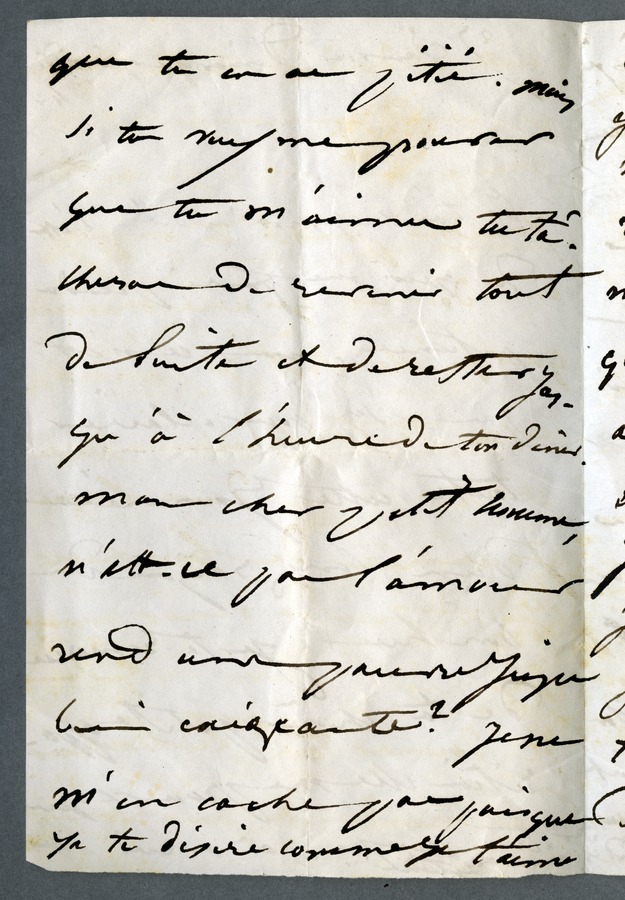 que tu en aie pitié. Mais
si tu veux me prouver
que tu m'aimes tu tâ-
cheras de revenir tout
de suite et de rester jus-
qu'à l'heure de ton dîner.
mon cher petit homme,
n'est-ce pas l'amour
rend une pauvre Juju
bien exigeante? Je ne
m'en cache pas puisque
je te désire comme je t'aime